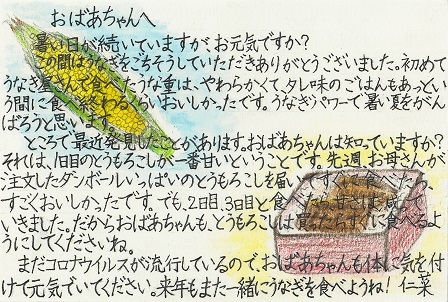 おばあちゃんへ
暑い日が続いていますが、お元気ですか?
この間はうなぎをごちそうしていただきありがとうございました。初めて
うなぎ屋さんで食べたうな重は、やわらかくて、タレ味のごはんもあっとい
う間に食べ終わるくらいおいしかったです。うなぎパワーで暑い夏をがん
ばろうと思います。
ところで最近発見したことがあります。おばあちゃんは知っていますか?
それは、1日目のとうもろこしが一番甘いということです。先週、お母さんが
注文したダンボールいっぱいのとうもろこしを届いてすぐに食べたら、
すごくおいしかったです。でも、2日目、3日目と食べたら甘さは減って
いきました。だからおばあちゃんも、とうもろこしは買ったらすぐに食べるよ
うにしてくださいね。
まだコロナウイルスが流行しているので、おばあちゃんも体に気を付
けて元気でいてください。来年もまた一緒にうなぎを食べようね! 仁菜